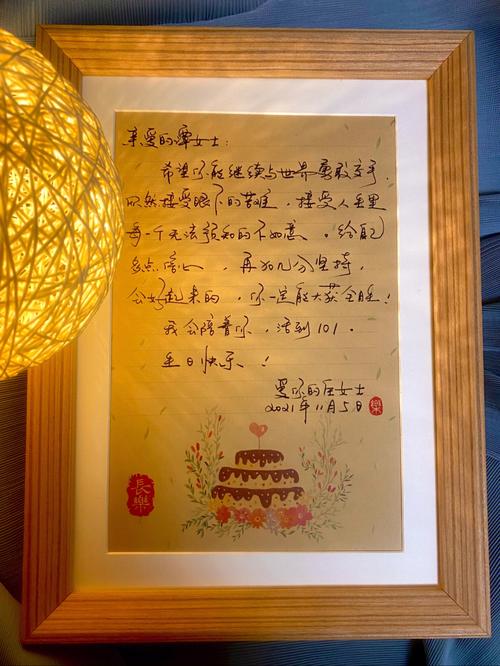 亲爱的覃女士:
希望你能继续与世界勇敢交手,
坦然接受眼下的苦难,接受人生里
每一个无法预知的不如意。给自己
多点信心,再加几分坚持,
会好起来的,你一定能大获全胜!
我会陪着你,活到101。
生日快乐!
爱你的女士
2021年11月5日 樂
長樂